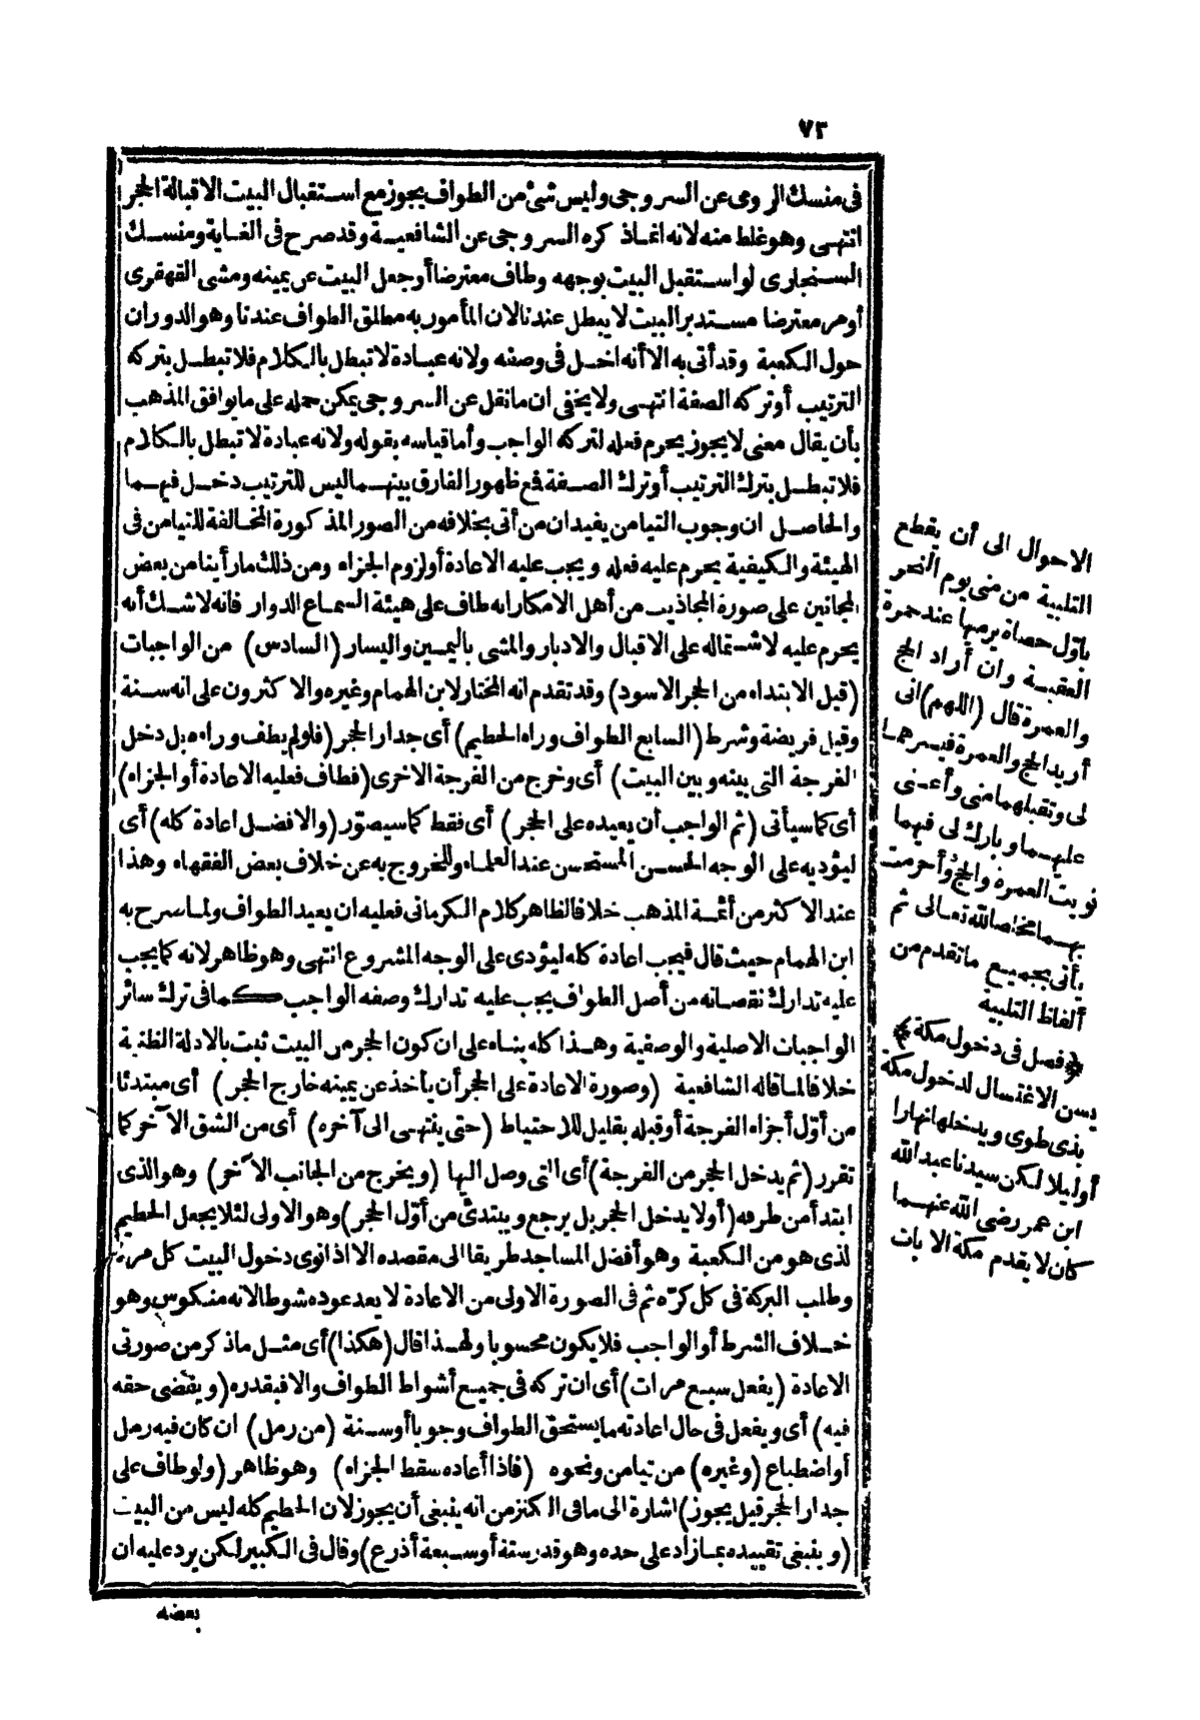 ٧٣
فى منسك الرومى عن السروجى وليس شئ من الطواف يجوز مع استقبال البيت الا قبالة الحجر
انتهى وهو غلط منه لانه انما ذكره السروجى عن الشافعية وقد صرح فى الغاية ومنسك
السنجارى لو استقبل البيت بوجهه وطاف معترضا أو جعل البيت عن يمينه ومشى القهقرى
أو مر معترضا مستدبر البيت لا يبطل عندنا لان المأمور به مطلق الطواف عندنا وهو الدوران
حول الكعبة وقد أتى به الا أنه اخل فى وصفه ولانه عبادة لا تبطل بالكلام فلا تبطل بتركه
الترتيب أو تركه الصفة انتهى ولا يخفى ان ما نقل عن السروجى يمكن حمله على ما يوافق المذهب
بأن يقال معنى لا يجوز يحرم فعله لتركه الواجب وأما قياسه بقوله ولانه عبادة لا تبطل بالكلام
فلا تبطل بترك الترتيب أو ترك الصفة فمع ظهور الفارق بينهما ليس للترتيب دخل فيهما
والحاصل ان وجوب التيامن يفيد ان من أتى بخلافه من الصور المذكورة المخالفة للتيامن فى
الهيئة والكيفية يحرم عليه فعله ويجب عليه الاعادة أو لزوم الجزاء ومن ذلك ما رأينا من بعض
المجانين على صورة المجاذيب من أهل الامكار انه طاف على هيئة السماع الدوار فانه لا شك أنه
يحرم عليه لاشتماله على الاقبال والادبار والمشى باليمين واليسار (السادس) من الواجبات
(قيل الابتداء من الحجر الاسود) وقد تقدم انه المختار لابن الهمام وغيره والاكثرون على انه سنة
وقيل فريضة وشرط (السابع الطواف وراء الحطيم) أى جدار الحجر (فلو لم يطف وراءه بل دخل
الفرجة التى بينه وبين البيت) أى وخرج من الفرجة الاخرى (فطاف فعليه الاعادة أو الجزاء)
أى كما سيأتى (ثم الواجب أن يعيده على الحجر) أى فقط كما سيصور (والافضل اعادة كله) أى
ليؤديه على الوجه الحسن المستحسن عند العلماء وللخروج به عن خلاف بعض الفقهاء وهذا
عند الاكثر من أئمة المذهب خلافا لظاهر كلام الكرمانى فعليه ان يعيد الطواف ولما سرح به
ابن الهمام حيث قال فيجب اعادة كله ليؤدى على الوجه المشروع انتهى وهو ظاهر لانه كما يجب
عليه تدارك نقصانه من أصل الطواف يجب عليه تدارك وصفه الواجب كما فى ترك سائر
الواجبات الاصلية والوصفية وهذا كله بناء على ان كون الحجر من البيت ثبت بالادلة الظنية
خلافا لما قاله الشافعية (وصورة الاعادة على الحجر أن يأخذ عن يمينه خارج الحجر) أى مبتدئا
من أوّل أجزاء الفرجة أو قبله بقليل للاحتياط (حتى ينتهى الى آخره) أى من الشق الآخر كما
تقرر (ثم يدخل الحجر من الفرجة) أى التى وصل اليها (ويخرج من الجانب الآخر) وهو الذى
ابتدأ من طرفه (أو لا يدخل الحجر بل يرجع ويبتدئ من أوّل الحجر) وهو الاولى لئلا يجعل الحطيم
لذى هو من الكعبة وهو أفضل المساجد طريقا الى مقصده الا اذا نوى دخول البيت كل مرة
وطلب البركة فى كل كرّه ثم فى الصورة الاولى من الاعادة لا يعد عوده شوطا لانه منكوس وهو
خلاف الشرط أو الواجب فلا يكون محسوبا ولهذا قال (هكذا) أى مثل ما ذكر من صورتى
الاعادة (يفعل سبع مرات) أى ان تركه فى جميع أشواط الطواف والا فبقدره (ويقضى حقه
فيه) أى ويفعل فى حال اعادته ما يستحق الطواف وجوبا أو سنة (من رمل) ان كان فيه رمل
أو اضطباع (وغيره) من تيامن ونحوه (فاذا أعاده سقط الجزاء) وهو ظاهر (ولو طاف على
جدار الحجر قيل يجوز) اشارة الى ما فى الكنز من انه ينبغى أن يجوز لان الحطيم كله ليس من البيت
(وينبغى تقييده بما زاد على حده وهو قدر ستة أو سبعة أذرع) وقال فى الكبير لكن يرد عليه ان
بعضه
الاحوال الى أن يقطع
التلبية من منى يوم النحر
بأوّل حصاة يرميها عند جمرة
العقبة وان أراد الحج
والعمرة قال (اللهم) انى
أريد الحج والعمرة فيسرهما
لى وتقبلهما منى وأعنى
عليهما وبارك لى فيهما
نويت العمرة والحج وأحرمت
بهما مخلصا لله تعالى ثم
يأتى بجميع ما تقدم من
ألفاظ التلبية
﴿فصل فى دخول مكة﴾
يسن الاغتسال لدخول مكة
بذى طوى ويدخلها نهارا
أو ليلا لكن سيدنا عبد الله
ابن عمر رضى الله عنهما
كان لا يقدم مكة الا بات